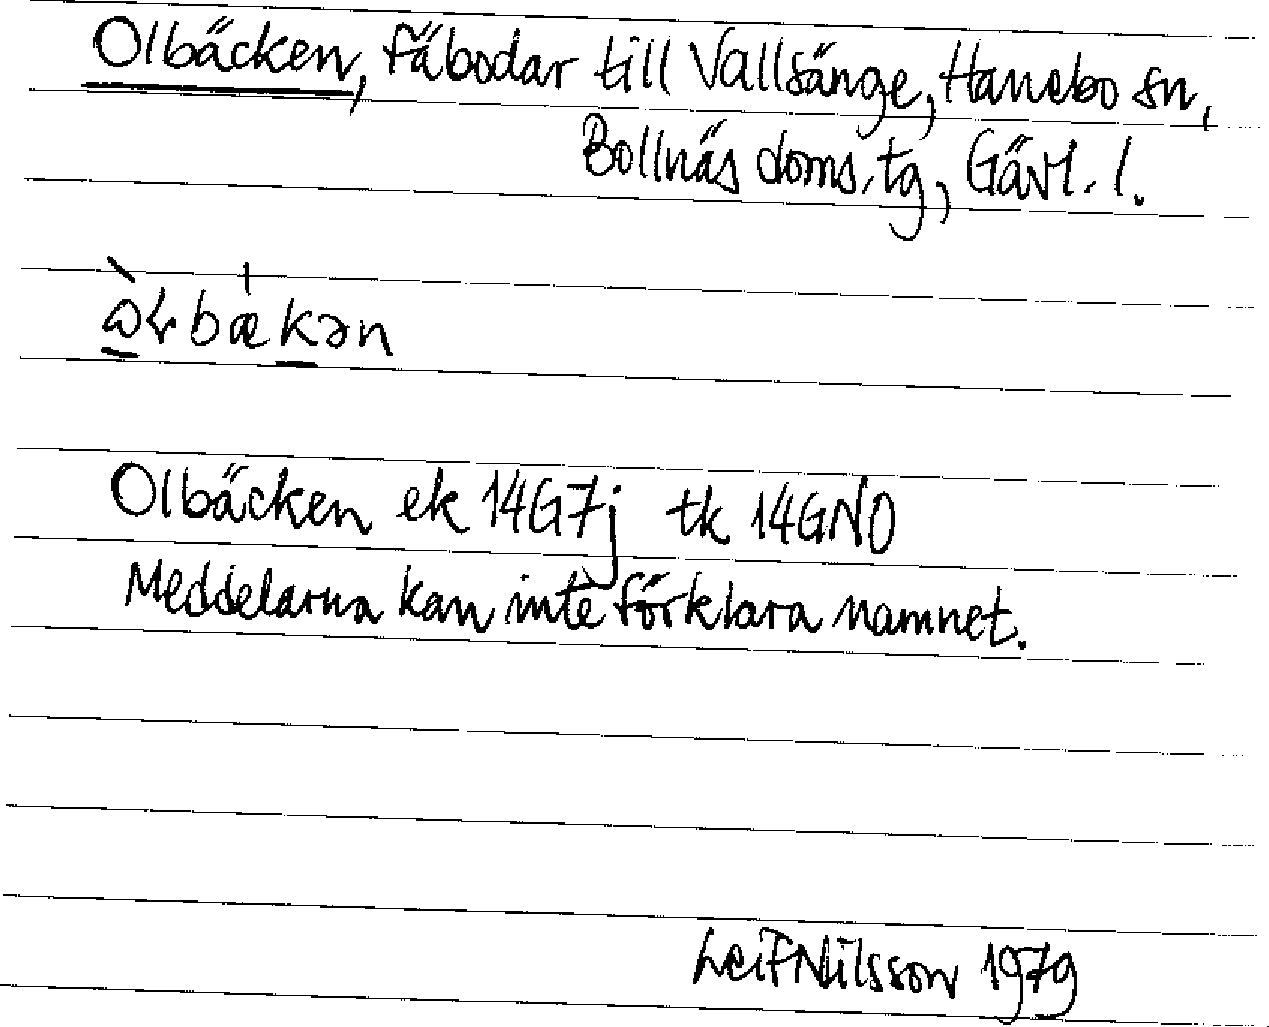 Olbäcken, fäbodar till Vallsänge, Hanebo sn,
Bollnäs doms.tg, Gävl. l.
Olbäcken ek 14G7j tk 14GNO
Meddelarna kan inte förklara namnet.
Leif Nilsson 1979